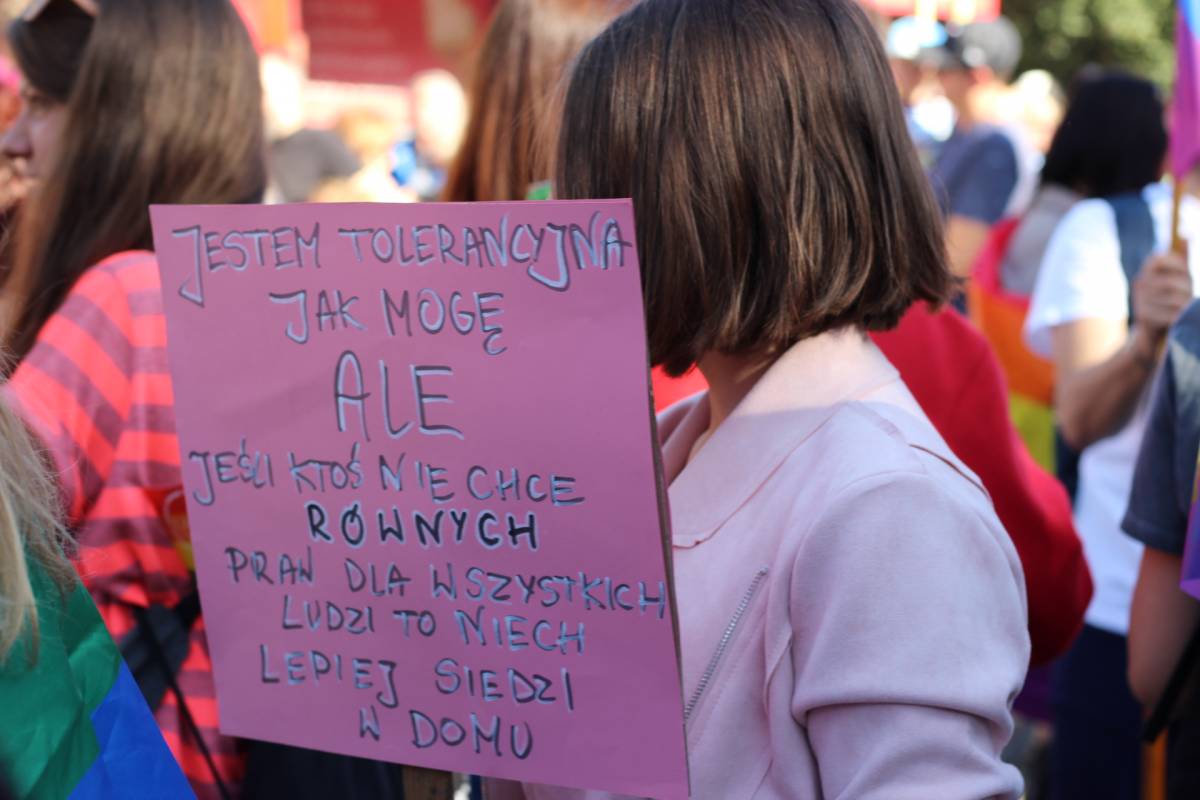 JESTEM TOLERANCYJNA
JAK MOGĘ
ALE
JEŚLI KTOŚ NIE CHCE
RÓWNYCH
PRAW DLA WSZYSTKICH
LUDZI TO NIECH
LEPIEJ SIEDZI
W DOMU